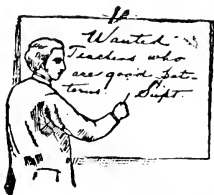 Wanted-
Teachers who
are good Pat-
terns. Supt.